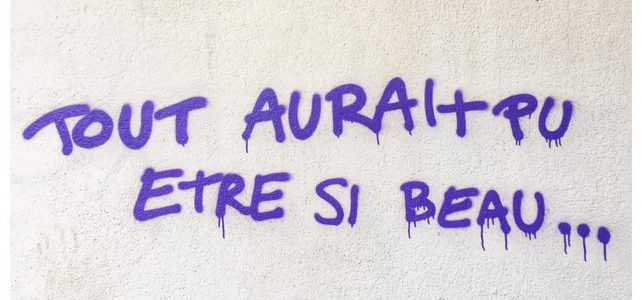 TOUT AURAIt PU
EtRE SI BEAU...